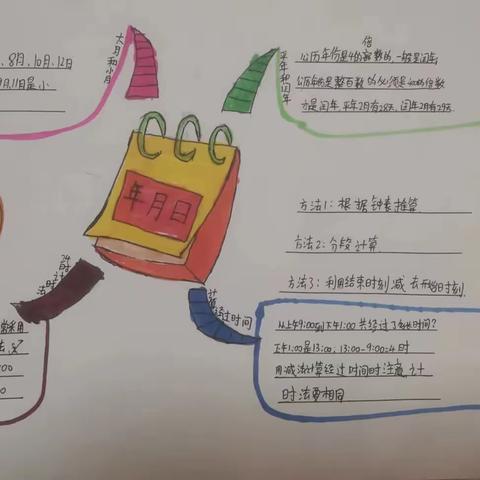 、8月、10月、12日
9月、11日是小
大月和小月
平年和闰年
倍
公历年份是4的容数的,一般是闰年
公历年份是整百数的必须是400的倍数
才是闰年,平年2月有28天,闰年2月有29天.
年月日
方法1：根据钟表推算
方法2：分段计算
方法3：利用结束时刻减去开始时刻.
计算经过时间
从上午9:00到下午1:00共经过了多长时间?
下午1:00是13:00，13:00-9:00=4时
用减法计算经过时间时注意，计
时法要相同
时法
常采用
法,
:00
00